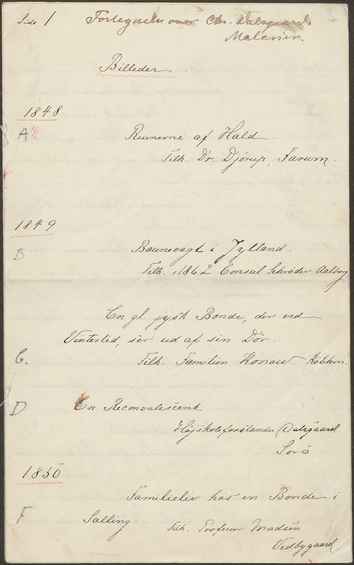 Side 1 Fortegnelse over Chr. Dalsgaards
Malerier.
Billeder.
1848
A
Ruinerne af Hald
Tilh. Dr. Djörup, Farum
1849
B
Baunevogt i Jylland.
Tilh. 1862 Consul Schröder Aalborg
En gl. jydsk Bonde, der ved
Vintertid, ser ud af sin Dör.
C. Tilh. Familien Kbhvn.
D En Reconvalescent
Höjskoleforstander Dalsgaard
Sorö
1850
Familieliv hos en Bonde i
F Salling Tilh. Professor Madsen
Vedbygaard